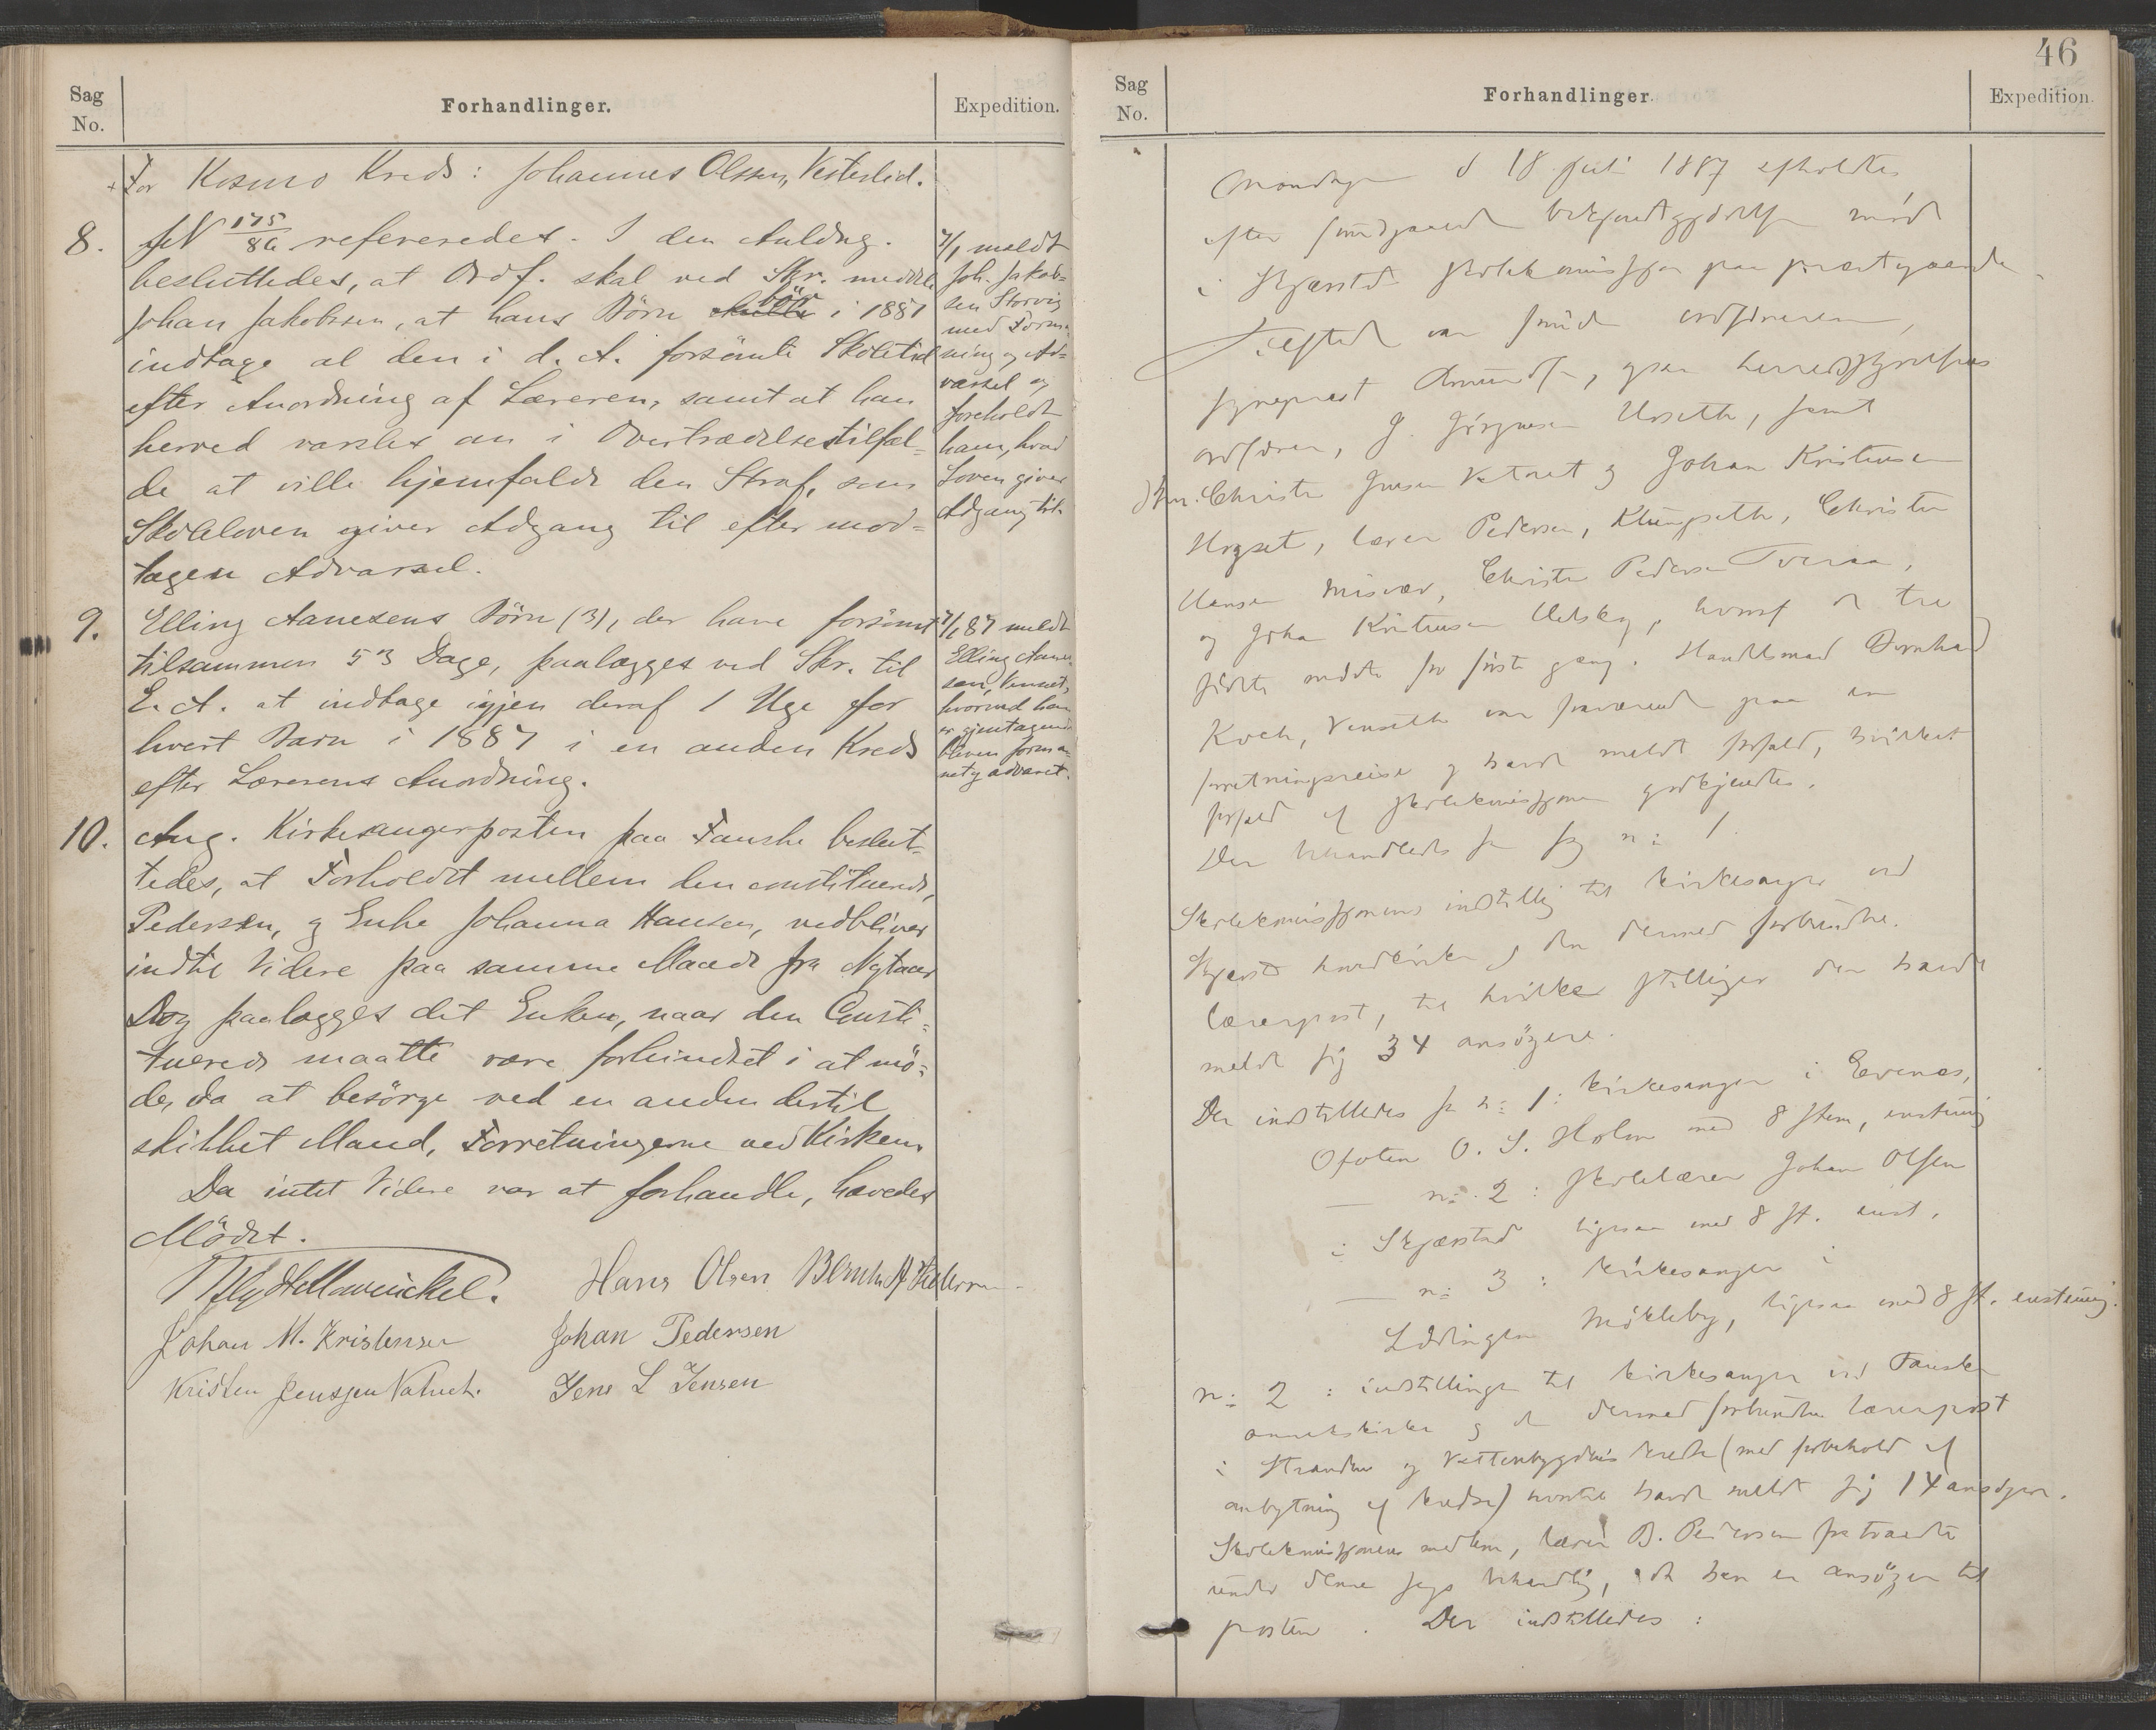 Sag
No.
Forhandlinger.
Expedition.
+For Kosmo Kreds: Johannes Olssen, Vesterlid.
8. JN 175/86 refereredes. I den Anldng.
besluttedes, at Ordf. skal ved Skr. meddele
Johan Jakobssen, at hans Börn bör i 1887
indtage al den i d. A. forsömte Skoletid
efter Anordning af Læreren, samt at han
herved varsles om i Overtrædelsestilfæl-
de at ville hjemfalde den Straf, som
Skoleloven giver Adgang til efter mod-
tagen Advarsel.
7/1 meldt
Joh. Jakob-
sen Storvig
med Forma-
ning og Ad-
varsel og
foreholdt
ham, hvad
Loven giver
Adgang til.
9. Elling Aanesens Börn (3), der have forsömt
tilsammen 53 Dage, paalægges ved Skr. til
E. A. at indtage igjen deraf 1 Uge for
hvert Barn i 1887 i en anden Kreds
efter Lærerens Anordning.
7/1 87 meldt
Elling Aane-
sen, Venset,
hvorved han
er gjentagende
bleven forma-
net og advaret.
10. Ang. Kirkesangerposten paa Fauske beslut-
tedes, at Forholdet mellem den constituerede,
Pedersen, og Enke Johanna Hansen, vedbliver
indtil Videre paa samme Maade fra Nytaar
Dog paalægges det Enken, naar den Consti-
tuerede maatte være forhindret i at mö-
de, da at besörge ved en anden dertil
skikket Mand, Forretningerne ved Kirken.
Da intet Videre var at forhandle, hævedes
Mödet.
Hans Olsen
Johan M. Kristensen Johan Pedersen
Kristen Jenssen Jens L Jensen
46
Sag
No.
Forhandlinger.
Expedition.
Mandag d 18 juli 1887 afholdtes
efter bekjendtgjörelse möde
i Skjerstad skolekommission paa præstegaarden.
Tilstede var ordföreren,
sogneprest Amundsen, herredsstyrelsens
ordförer, J. Jörgensen Urseth, samt
Christen Jensen Vatnet og Johan Kristensen
lærer Pedersen, Klungseth, Christen
Hansen Misvær, Christen Pedersen Tveraa,
og Johan Kristensen hvoraf de tre
sidste mödte for förste gang. Handelsmand Bernhard
Koch, Venseth var fraværende paa en
forretningsreise og havde meldt forfald, hvilket
forfald af skolekommissionen godkjendtes.
Der behandledes sag no: 1.
Skolekommissionens indstilling til kirkesanger ved
Skjerstad hovedkirke og den dermed forbundne
lærerpost, til hvilke stillinger der havde
meldt sig 34 ansögere.
Der indstilledes no: 1: kirkesanger i Evenes,
Ofoten O. S. Holm med 8 stem, enstemig
— no: 2: skolelærer Johan Olsen
i Skjærstad ligesaa med 8 st. enst.
— no: 3: kirkesanger i
Lödingen Mökleby, ligesaa med 8 st. enstemig.
no: 2: indstilling til kirkesanger ved Fauske
annekskirke og den dermed forbundne lærerpost
i Stranden og kreds (med forbehold af
ombytning af kredse) hvortil havde meldt sig 14 ansögere.
Skolekommissionens medlem, lærer B. Pedersen fratraadte
under denne sags behandling, da han er ansöger til
posten. Der indstilledes: